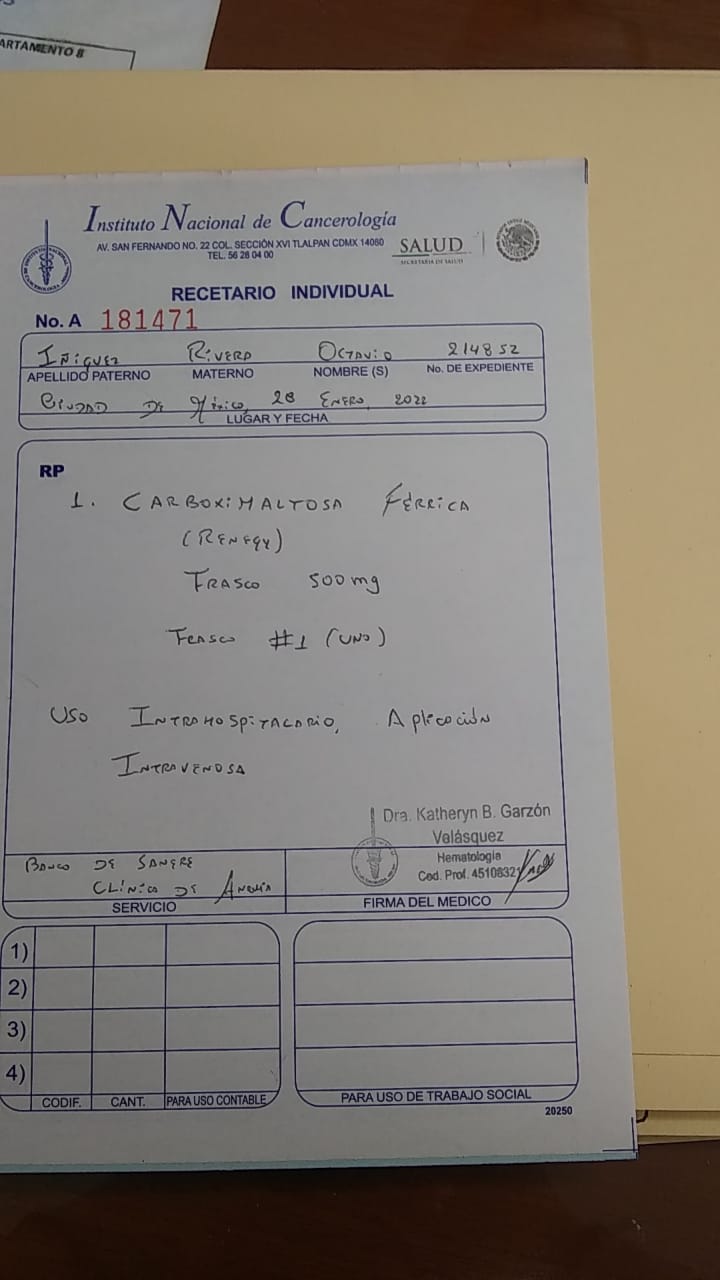 ARTAMENTO 8
Instituto Nacional de Cancerología
AV. SAN FERNANDO NO. 22 COL. SECCIÓN XVI TLALPAN CDMX 14080
TEL. 56 28 04 00
SALUD
SECRETARÍA DE SALUD
RECETARIO INDIVIDUAL
No. A 181471
Iñiguez Rivera Octavio 214852
APELLIDO PATERNO MATERNO NOMBRE (S) No. DE EXPEDIENTE
Ciudad de México, 28 Enero, 2022
LUGAR Y FECHA
RP
1. CARBOXIMALTOSA FÉRRICA
(RENEGY)
FRASCO 500mg
Frasco #1 (UNO)
USO INTRAHOSPITALARIO, Aplicación
INTRAVENOSA
Dra. Katheryn B. Garzón
Velásquez
Hematología
Ced. Prof. 4510832
BANCO DE SANGRE
CLÍNICA DE ANEMIA
SERVICIO
FIRMA DEL MEDICO
1)
2)
3)
4)
CODIF. CANT. PARA USO CONTABLE
PARA USO DE TRABAJO SOCIAL
20250